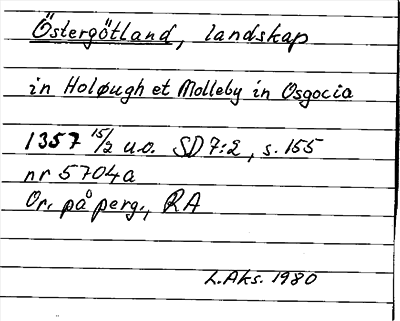 Östergötland, landskap
in Holøugh et Molleby in Osgocia
1357 15/2 u.o. SD 7:2, s. 155
nr 5704a
Or. på perg., RA
L.Aks. 1980